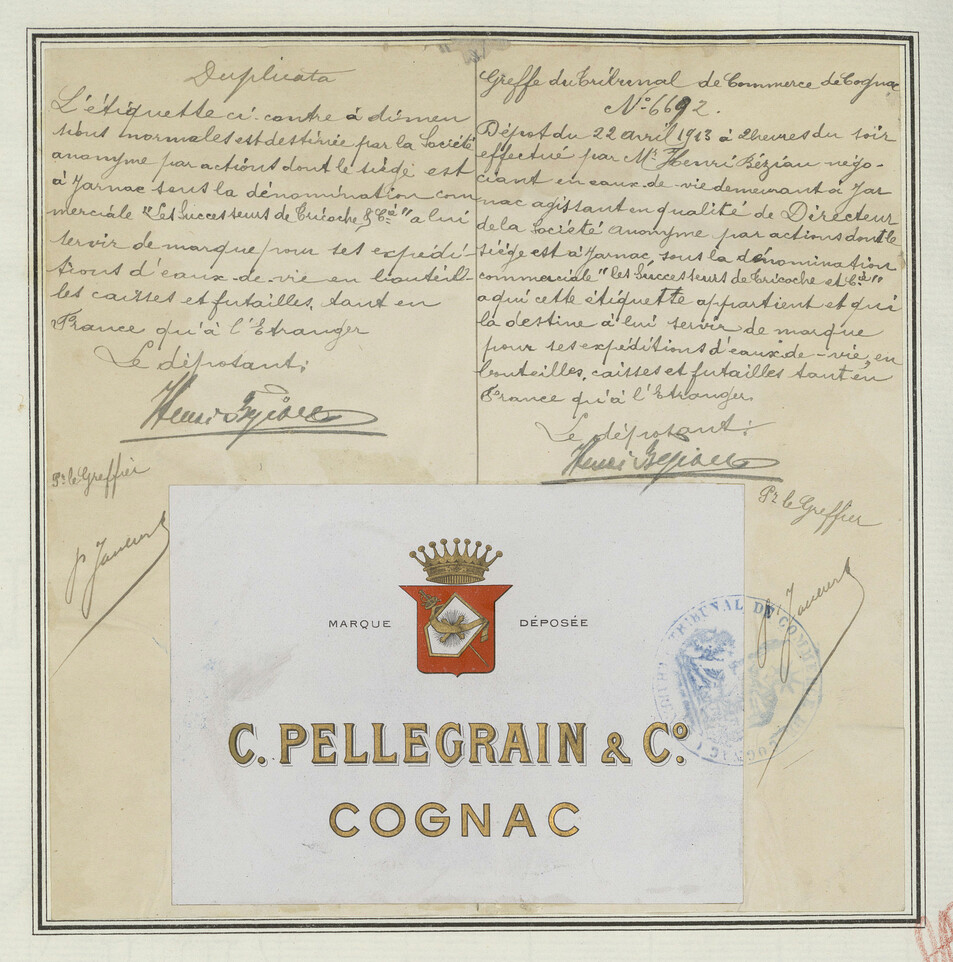 Duplicata
L'étiquette ci-contre à dimen
sions normales est destinée par la Société
anonyme par actions dont le siège est
à Jarnac sous la dénomination com
merciale "Les Successeurs de Tricoche & Cie" a lui
servir de marque pour ses expédi-
tions d'eaux-de-vie en bouteil-
les caisses et futailles, tant en
France qu'à l'Etranger
Le déposant:
Pr le Greffier
Greffe du Tribunal de Commerce de Cognac
No 6692.
Dépôt du 22 avril 1913 à 2 heures du soir
effectué par Mr Henri Béziau négo-
ciant en eaux-de-vie demeurant à Jar
nac agissant en qualité de Directeur
de la Société anonyme par actions dont le
siège est à Jarnac, sous la dénomination
commerciale "les Successeurs de Tricoche et Cie"
a qui cette étiquette appartient et qui
la destine à lui servir de marque
pour ses expéditions d'eaux-de-vie, en
bouteilles, caisses et futailles tant en
France qu'à l'Etranger.
Le déposant:
Pr le Greffier
MARQUE DÉPOSÉE
C. PELLEGRAIN & Co.
COGNAC
TRIBUNAL DE COMMERCE DE COGNAC